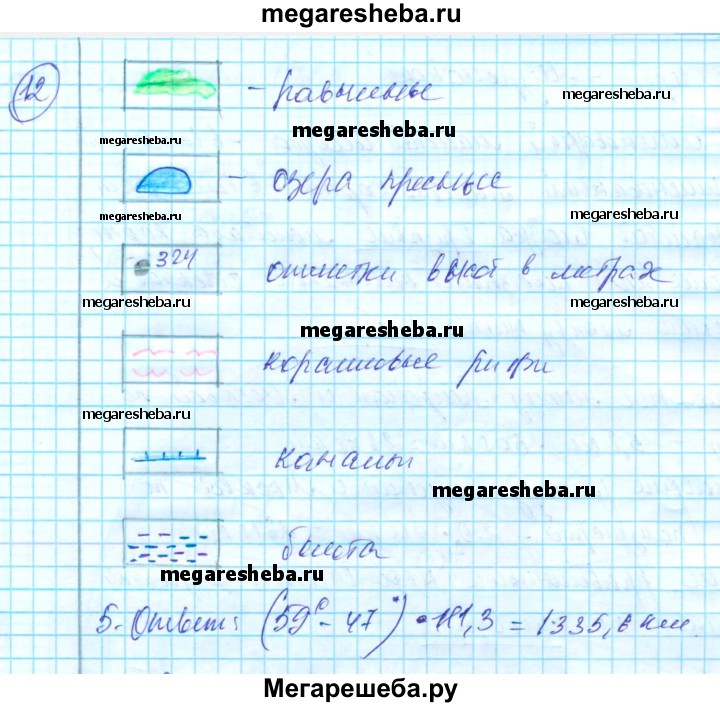 megaresheba.ru
12
- равнины
megaresheba.ru
megaresheba.ru
megaresheba.ru
- озера пресные
megaresheba.ru
megaresheba.ru
324 отметки высот в метрах
megaresheba.ru
megaresheba.ru
megaresheba.ru
коралловые рифы
megaresheba.ru
каналы
megaresheba.ru
болота
megaresheba.ru
5. Ответ: (59° - 47°) • 111,3 = 1335,6 км.
Мегарешеба.ру